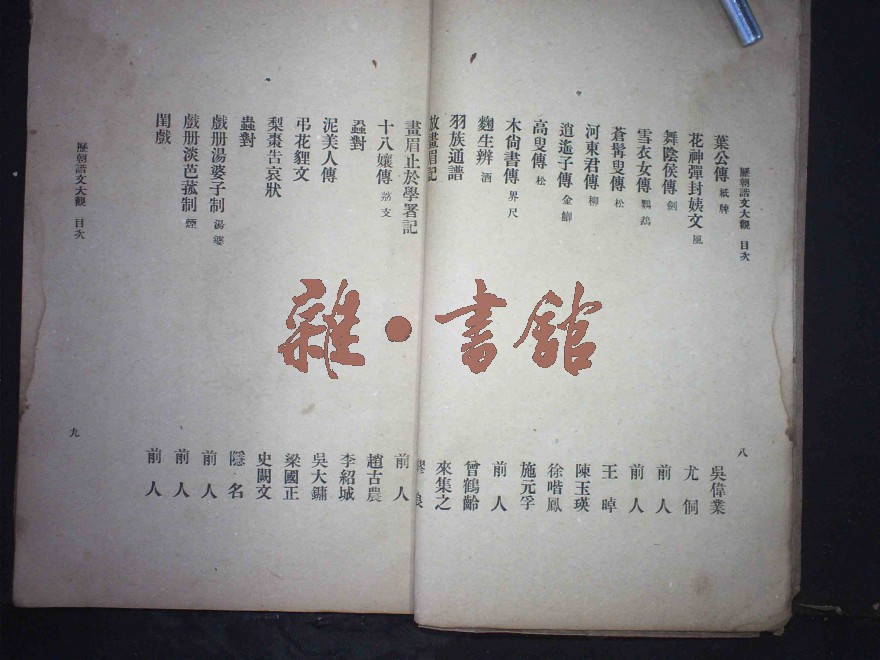 歷朝諧文大觀 目次 八
葉公傳 紙牌 吳偉業
花神彈封姨文 風 尤侗
舞陰侯傳 劍 前人
雪衣女傳 鸚鵡 前人
蒼髯叟傳 松 王晫
河東君傳 柳 陳玉瑛
逍遙子傳 金鯽 徐喈鳳
高叟傳 松 施元孚
木尙書傳 界尺 前人
麴生辨 酒 曾鶴齡
羽族通譜 來集之
畫眉記
畫眉止於學署記 前人
十八孃傳 荔支 趙古農
蝨對 李紹城
泥美人傳 吳大鏞
弔花貍文 梁國正
梨棗告哀狀 史闕文
蟲對 隱名
戲册湯婆子制 湯婆 前人
戲册淡芭菰制 煙 前人
閨戲 前人
歷朝諧文大觀 目次 九
雜·書館